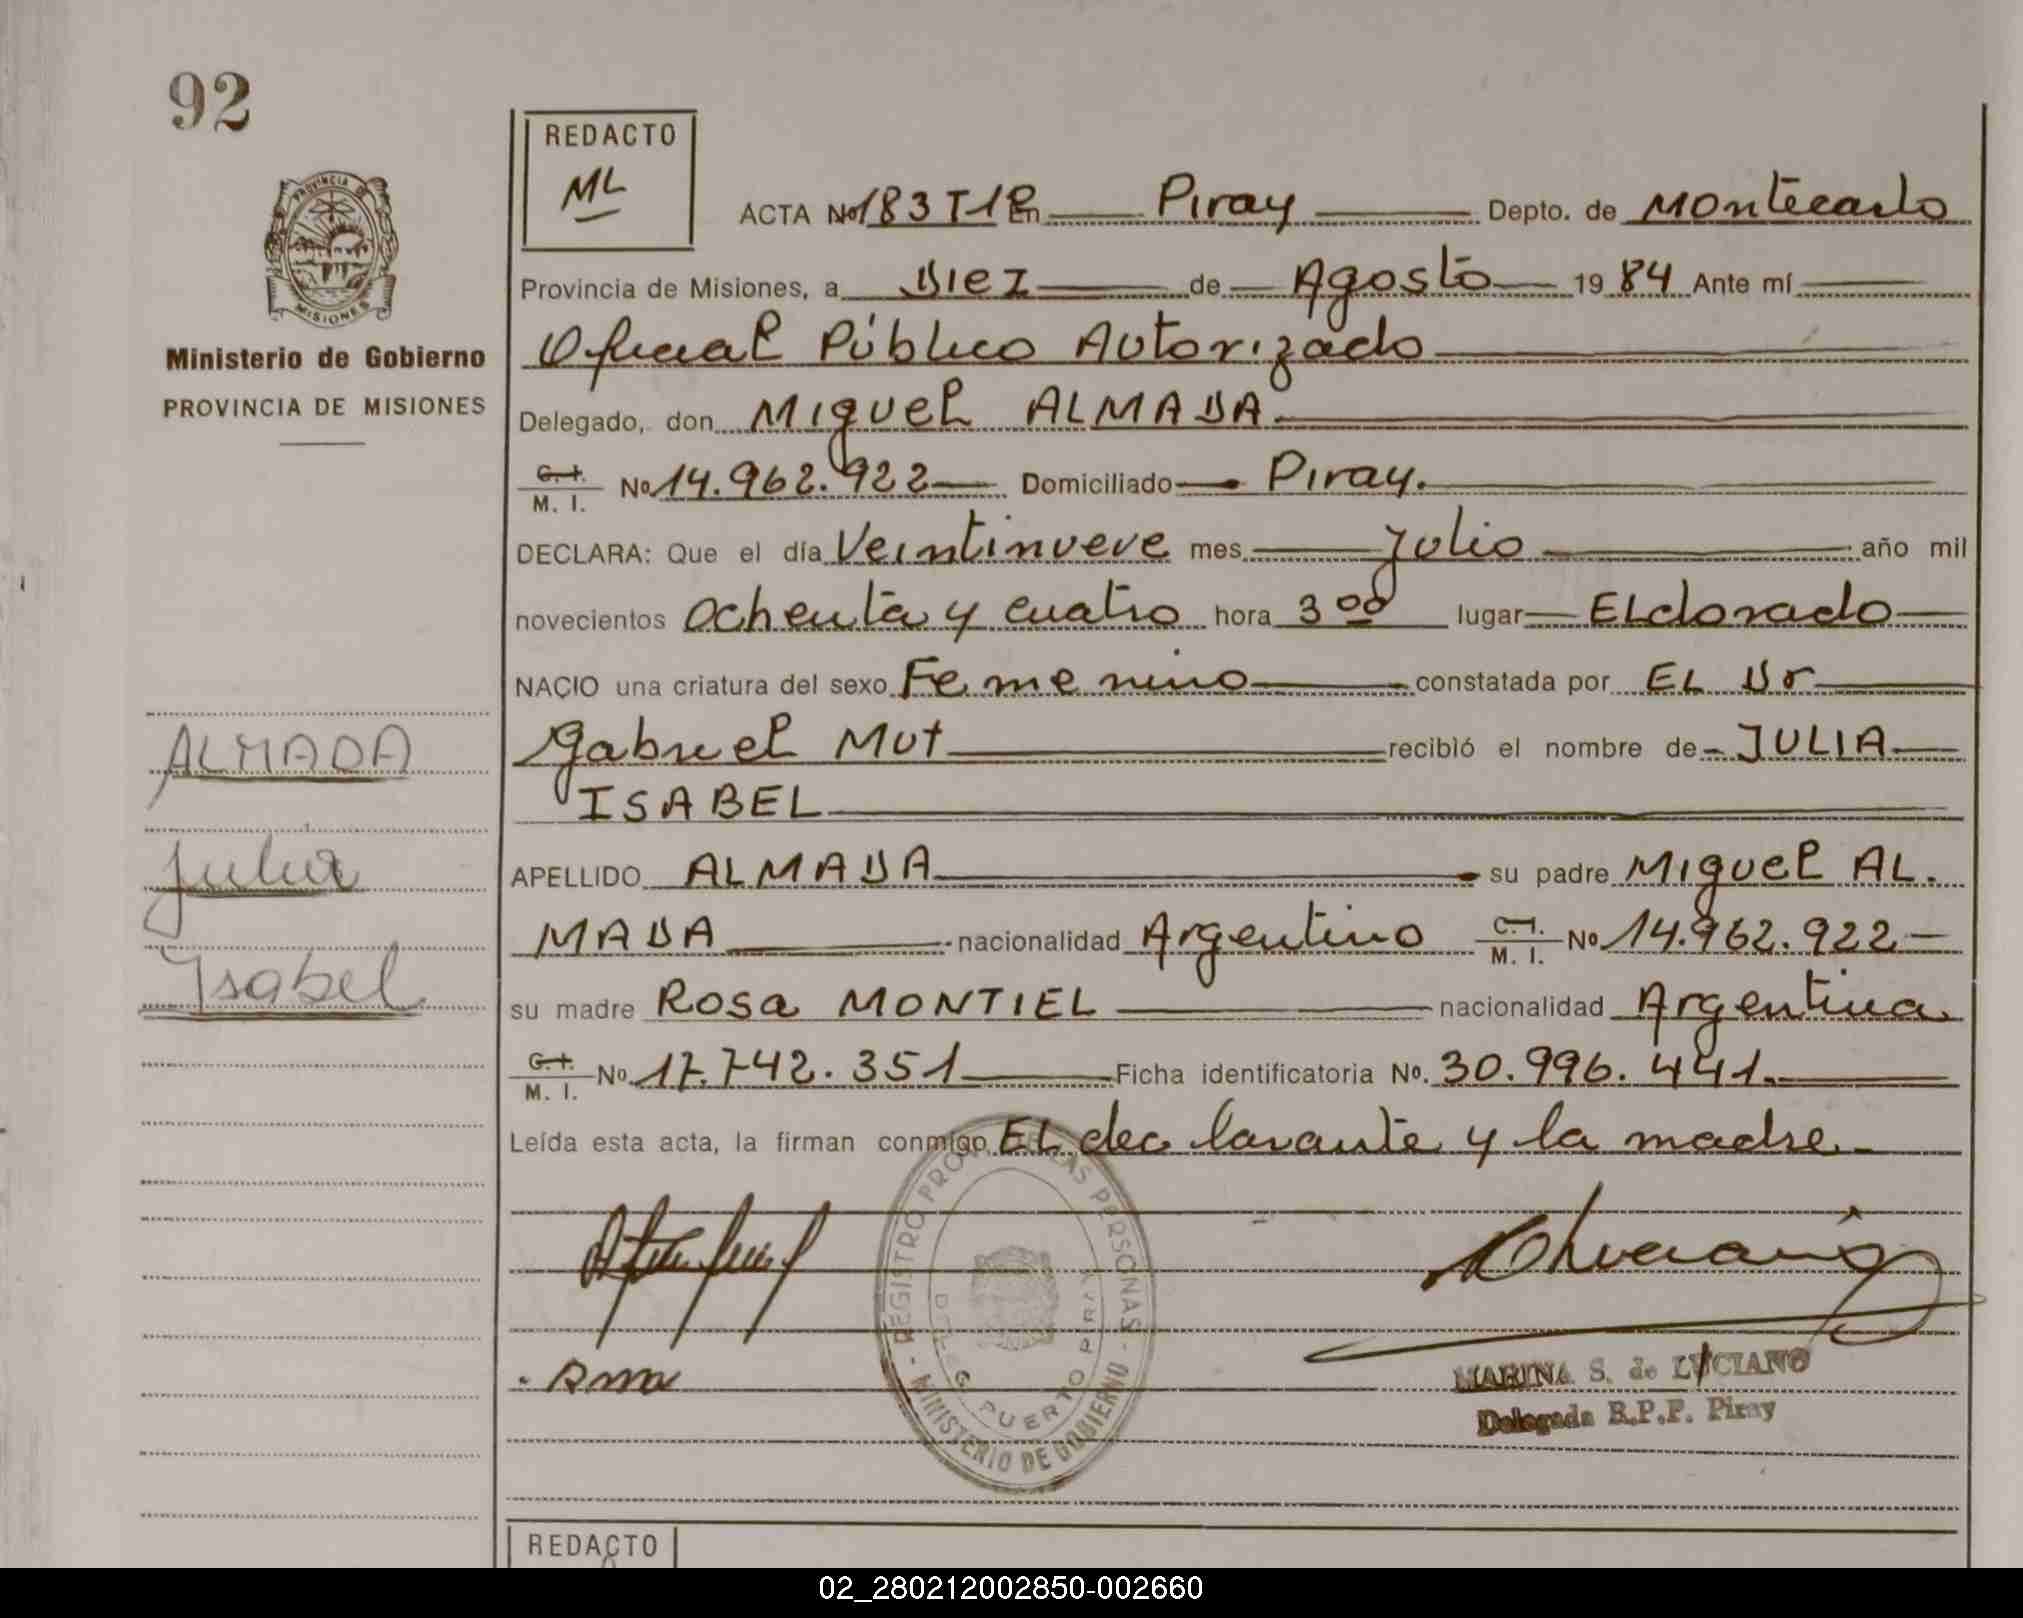 92
REDACTO
ML
ACTA No 183 T1º En Piray Depto. de Montecarlo
PROVINCIA DE
MISIONES
Provincia de Misiones, a Diez de Agosto 19 84 Ante mí
Ministerio de Gobierno
Oficial Público Autorizado
PROVINCIA DE MISIONES
Delegado, don Miguel ALMADA
C.I. M. I. No 14.962.922 Domiciliado Piray.
DECLARA: Que el día Veintinueve mes Julio año mil
novecientos Ochenta y cuatro hora 3 00 lugar ELdorado
NACIO una criatura del sexo Femenino constatada por EL Dr
Gabriel Mut recibió el nombre de JULIA
ALMADA
ISABEL
Julia
APELLIDO ALMADA su padre Miguel AL.
MADA nacionalidad Argentino C.I. M. I. No 14.962.922
Isabel
su madre Rosa MONTIEL nacionalidad Argentina
C.I. M. I. No. 17.742.351 Ficha identificatoria No. 30.996.441.
Leída esta acta, la firman conmigo EL declarante y la madre
REGISTRO PROV. DE LAS PERSONAS - MINISTERIO DE GOBIERNO -
DELEG. PUERTO PIRAY
MARINA S. de LUCIANO
Delegada R.P.P. Piray
REDACTO
02_280212002850-002660